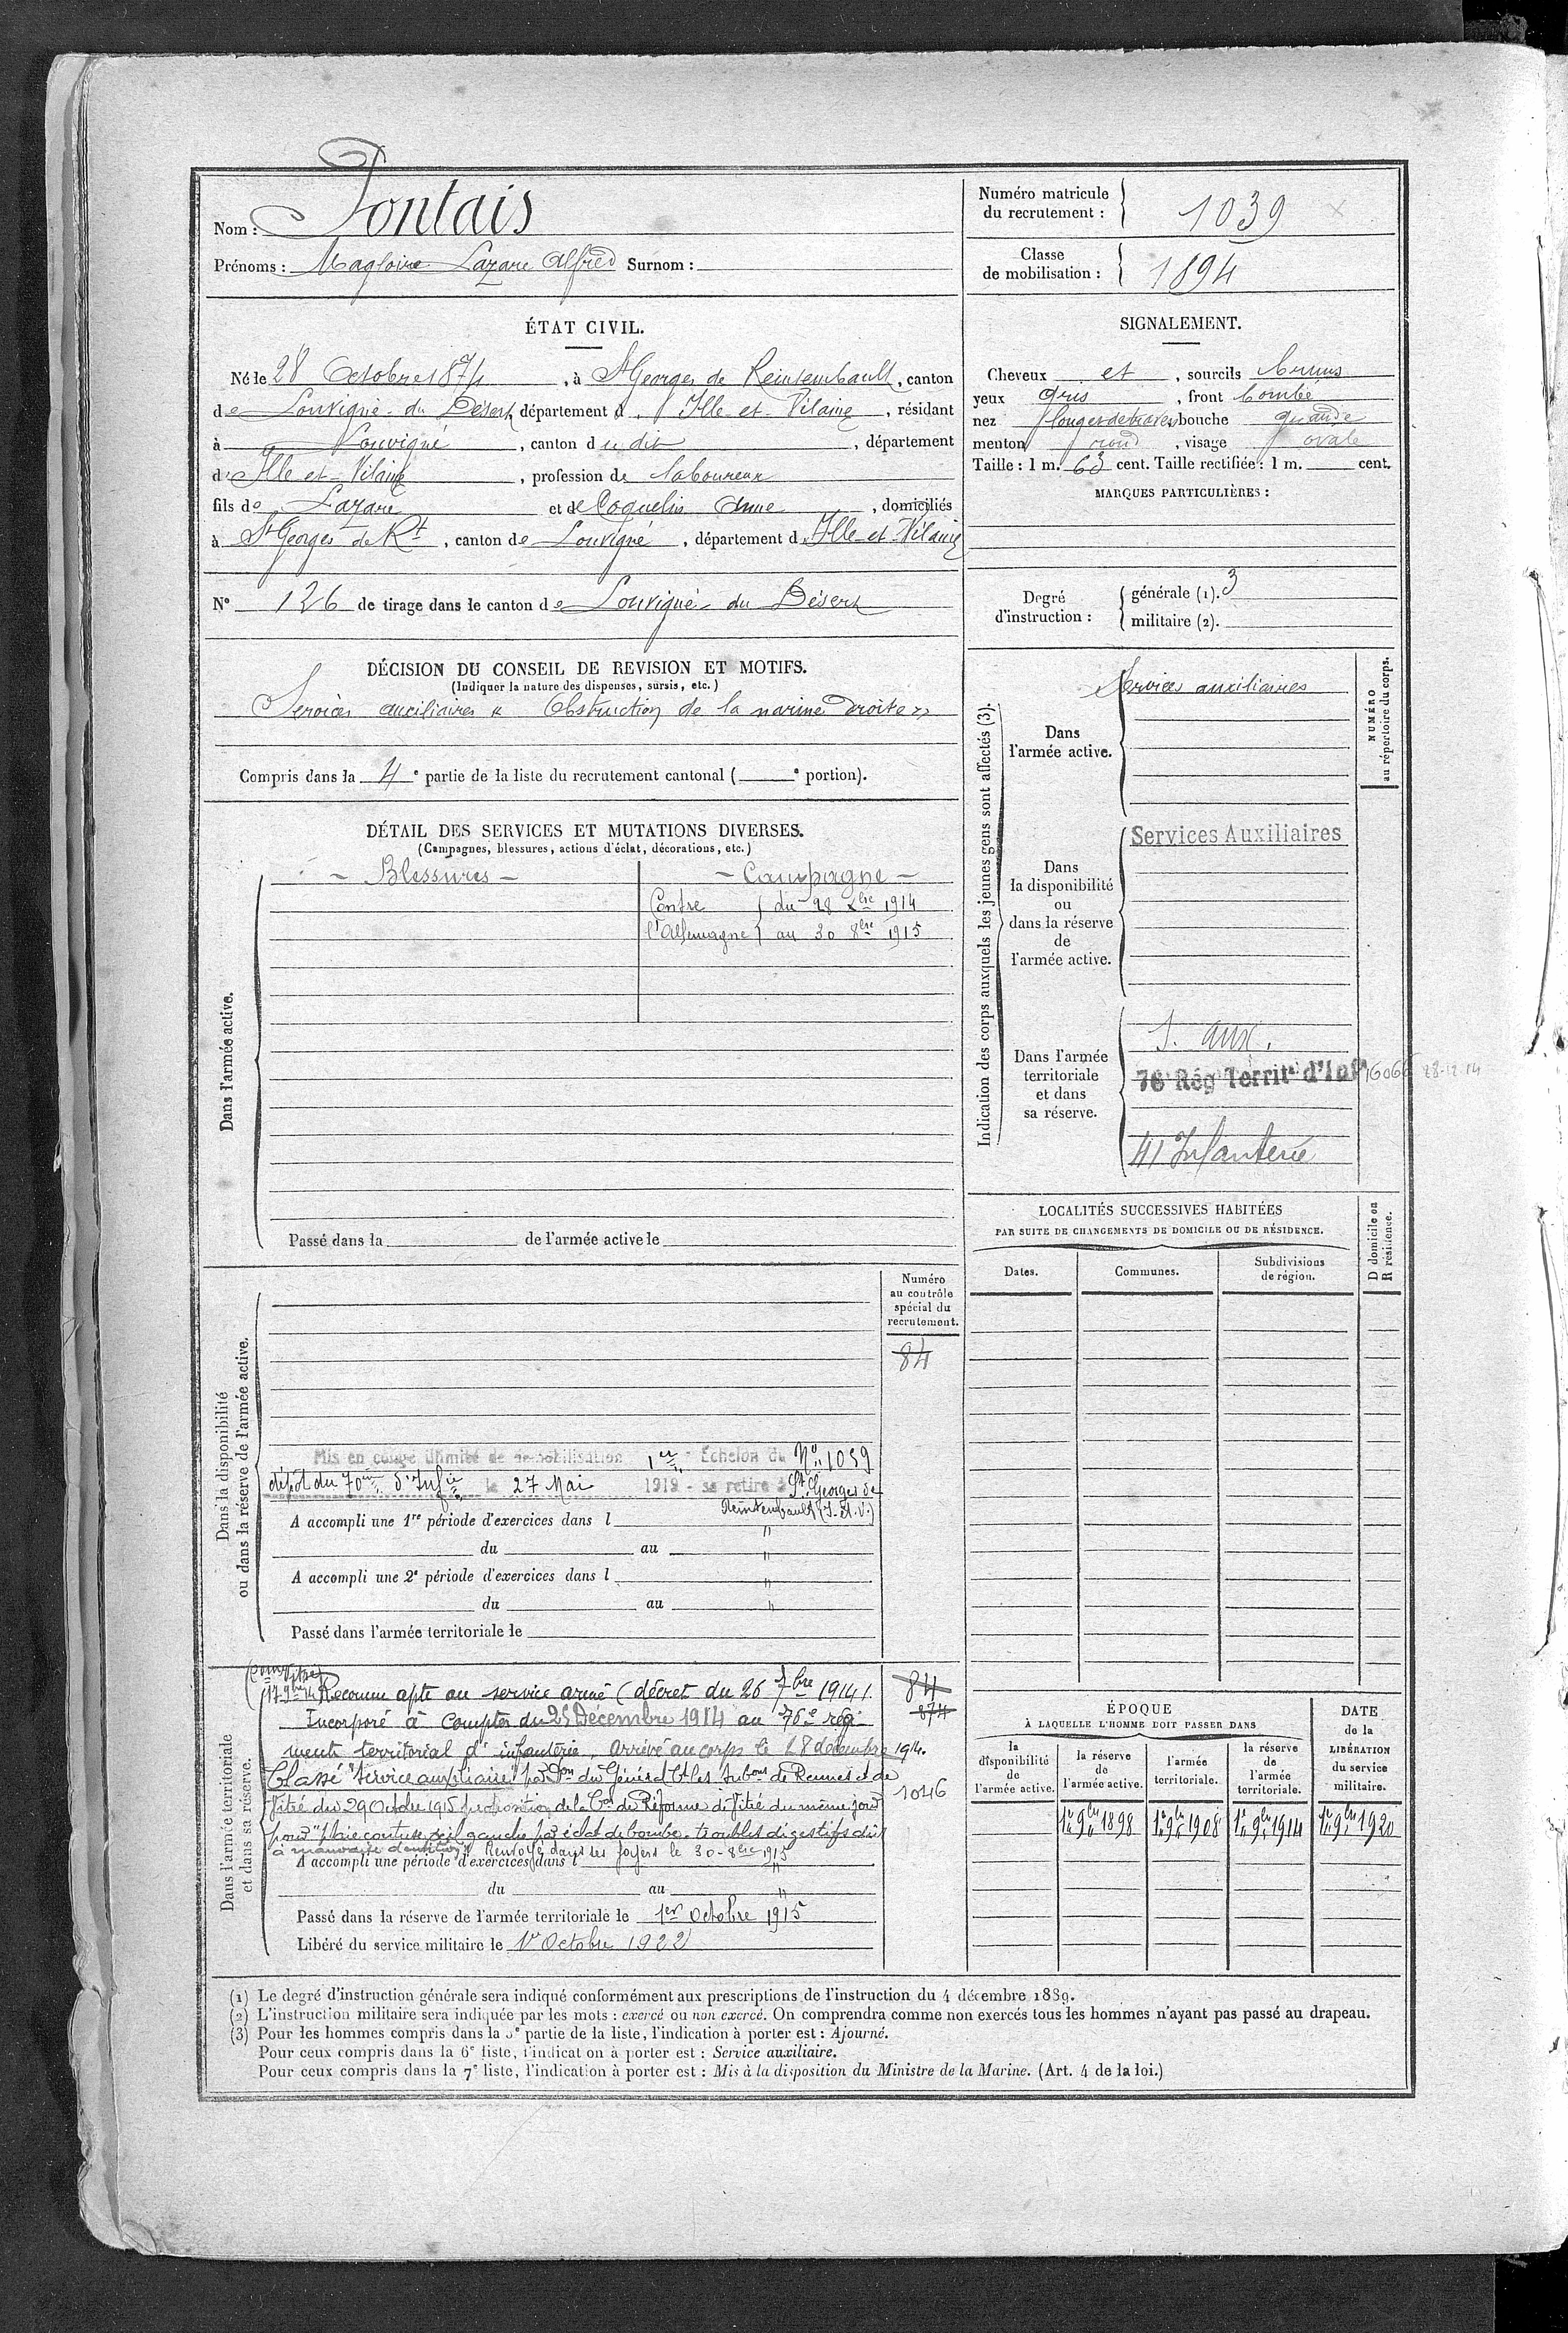 Nom : Pontais
Prénoms : Magloire Lazare Alfred Surnom :
Numéro matricule du recrutement : 1039
Classe de mobilisation : 1894
ÉTAT CIVIL.
Né le 28 Octobre 1874, à St Georges de Reintembault, canton
de Louvigné-du Désert, département d'Ille-et-Vilaine, résidant
à Louvigné, canton du dit, département
d'Ille-et-Vilaine, profession de laboureur
fils de Lazare et de Coquelin Anne, domiciliés
à St Georges de Rt, canton de Louvigné, département d'Ille-et-Vilaine
N° 126 de tirage dans le canton de Louvigné du Désert
SIGNALEMENT.
Cheveux et, sourcils bruns
yeux gris, front bombé
nez bouche grande
menton rond, visage ovale
Taille : 1 m. 63 cent. Taille rectifiée : 1 m. cent.
MARQUES PARTICULIÈRES :
Degré d'instruction : générale (1). 3
militaire (2).
DÉCISION DU CONSEIL DE REVISION ET MOTIFS.
(Indiquer la nature des dispenses, sursis, etc.)
Services auxiliaires « Obstruction de la narine droite »
Compris dans la 4e partie de la liste du recrutement cantonal ( e portion).
DÉTAIL DES SERVICES ET MUTATIONS DIVERSES.
(Campagnes, blessures, actions d'éclat, décorations, etc.)
- Blessures - - Campagne -
Contre du 28 Xbre 1914
l'Allemagne au 30 8bre 1915
Dans l'armée active.
Passé dans la de l'armée active le
Indication des corps auxquels les jeunes gens sont affectés (3).
NUMÉRO au répertoire du corps.
Dans l'armée active.
Services auxiliaires
Dans la disponibilité ou dans la réserve de l'armée active.
Services Auxiliaires
Dans l'armée territoriale et dans sa réserve.
S. aux.
76e Rég Territal d'Infie 16066 28-12-14
41 Infanterie
LOCALITÉS SUCCESSIVES HABITÉES
PAR SUITE DE CHANGEMENTS DE DOMICILE OU DE RÉSIDENCE.
Dates. Communes. Subdivisions de région. D domicile ou R résidence.
Dans la disponibilité ou dans la réserve de l'armée active.
Numéro au contrôle spécial du recrutement.
84
Mis en congé illimité de démobilisation 1er Echelon du No 1039
dépôt du 70me d'Infie le 27 Mai 1919 - se retire à St Georges de
Reintembault (I-et-V.)
A accompli une 1re période d'exercices dans l "
du au "
A accompli une 2e période d'exercices dans l "
du au "
Passé dans l'armée territoriale le
Dans l'armée territoriale et dans sa réserve.
Reconnu apte au service armé (décret du 26 7bre 1914). 84
874
Incorporé à compter du 25 Décembre 1914 au 76e régi-
ment territorial d'infanterie, arrivé au corps le 28 décembre 1914.
Classé "Service auxiliaire" par Don du Général Ct les Subons de Rennes et de
Vitré du 29 Octobre 1915 proposition de la Con de Réforme de Vitré du même jour 1046
pour "plaie contuse œil gauche par éclat de bombe, troubles digestifs dûs
à mauvaise dentition" Renvoyé dans ses foyers le 30-8bre 1915
A accompli une période d'exercices dans l "
du au "
Passé dans la réserve de l'armée territoriale le 1er Octobre 1915
Libéré du service militaire le 1er Octobre 1922
ÉPOQUE
À LAQUELLE L'HOMME DOIT PASSER DANS
la disponibilité de l'armée active. la réserve de l'armée active. l'armée territoriale. la réserve de l'armée territoriale.
DATE de la LIBÉRATION du service militaire.
1er 9bre 1898 1er 9bre 1908 1er 9bre 1914 1er 9bre 1920
(1) Le degré d'instruction générale sera indiqué conformément aux prescriptions de l'instruction du 4 décembre 1889.
(2) L'instruction militaire sera indiquée par les mots : exercé ou non exercé. On comprendra comme non exercés tous les hommes n'ayant pas passé au drapeau.
(3) Pour les hommes compris dans la 5e partie de la liste, l'indication à porter est : Ajourné.
Pour ceux compris dans la 6e liste, l'indication à porter est : Service auxiliaire.
Pour ceux compris dans la 7e liste, l'indication à porter est : Mis à la disposition du Ministre de la Marine. (Art. 4 de la loi.)